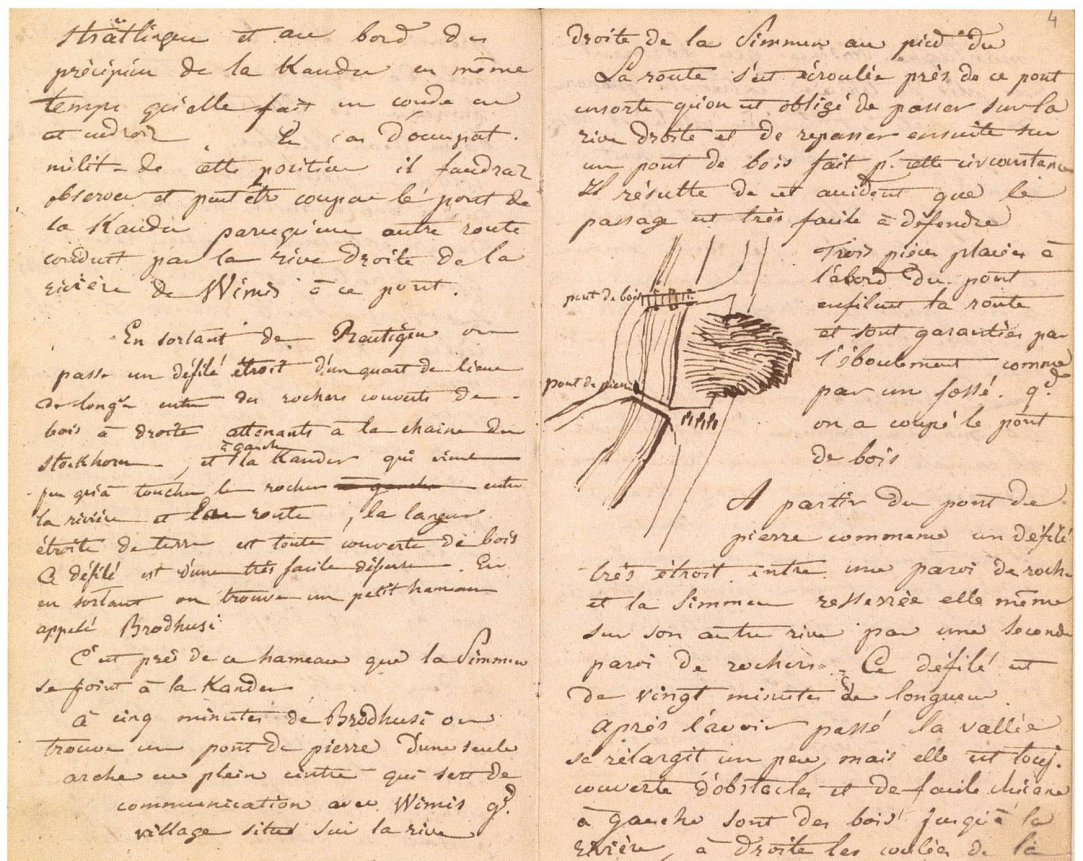 strättlingen et au bord du
précipice de la Kander en même
temps qu'elle fait un coude en
cet endroit En cas d'occupat.
milit. de cette position il faudrait
observer et peut être couper le pont de
la Kander parcequ'une autre route
conduit par la rive droite de la
rivière de Wimis à ce pont.
En sortant de Reutigen on
passe un défilé étroit d'un quart de lieue
de longr entre des rochers couverts de
bois à droite attenants à la chaine du
stockhorn, et à gauche la Kander qui vient
peu qu'à toucher le rocher entre
la rivière et la route, la largeur
étroite de terre est toute couverte de bois
Ce défilé est d'une très facile défense. En
en sortant on trouve un petit hameau
appelé Brodhusi
C'est près de ce hameau que la Simmen
se joint à la Kander
à cinq minutes de Brodhusi on
trouve un pont de pierre d'une seule
arche en plein cintre qui sert de
communication avec Wimis gd
village situé sur la rive
4
droite de la Simmen au pied du
La route s'est écroulée près de ce pont
ensorte qu'on est obligé de passer sur la
rive droite et de repasser ensuite sur
un pont de bois fait pr. cette circonstance
Il résulte de cet accident que le
passage est très facile à défendre
Trois pièces placées à
l'abord du pont
enfilent la route
et sont garanties par
l'éboulement comme
par un fossé. qd
on a coupé le pont
de bois
pont de bois
pont de pierre
A partir du pont de
pierre commence un défilé
très étroit entre une paroi de roche
et la Simmen resserrée elle même
sur son autre rive par une seconde
paroi de rochers. Ce défilé est
de vingt minutes de longueur
après l'avoir passé la vallée
se rélargit un peu, mais elle est touj.
couverte d'obstacles et de facile chicane
à gauche sont des bois jusqu'à la
rivière, à droite les coulées de la